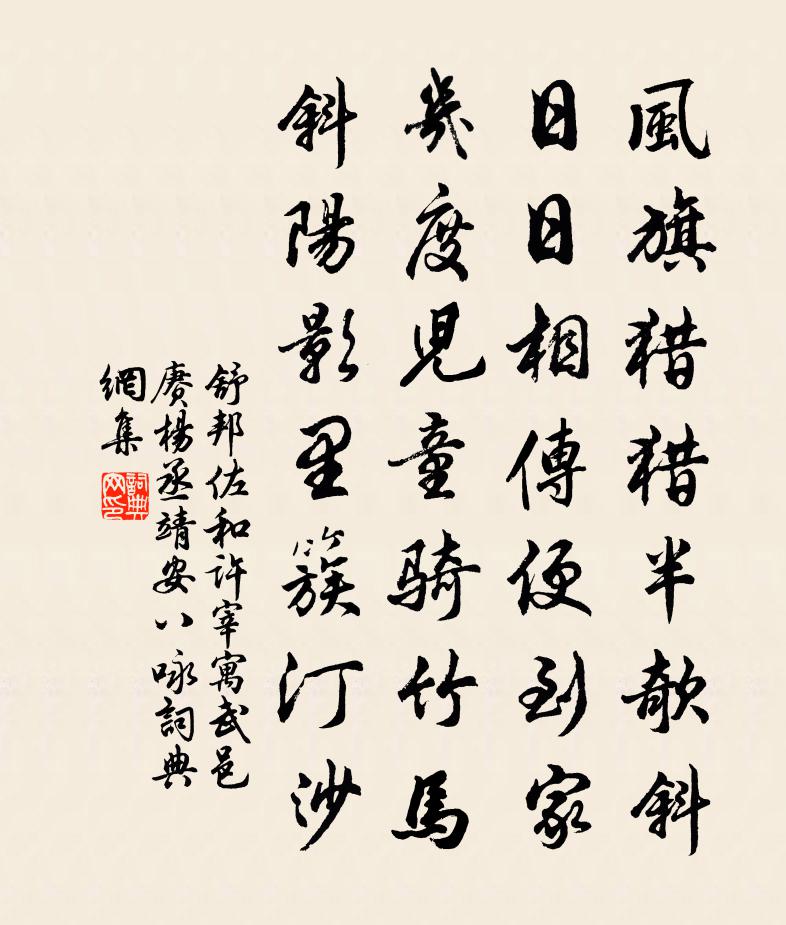 風旗猎猎半欹斜
日日相傳便到家
幾度児童騎竹馬
斜陽影里簇汀沙
舒邦佐和許宰寓武邑
賡楊丞靖安八咏詞典
網集
詞典网印